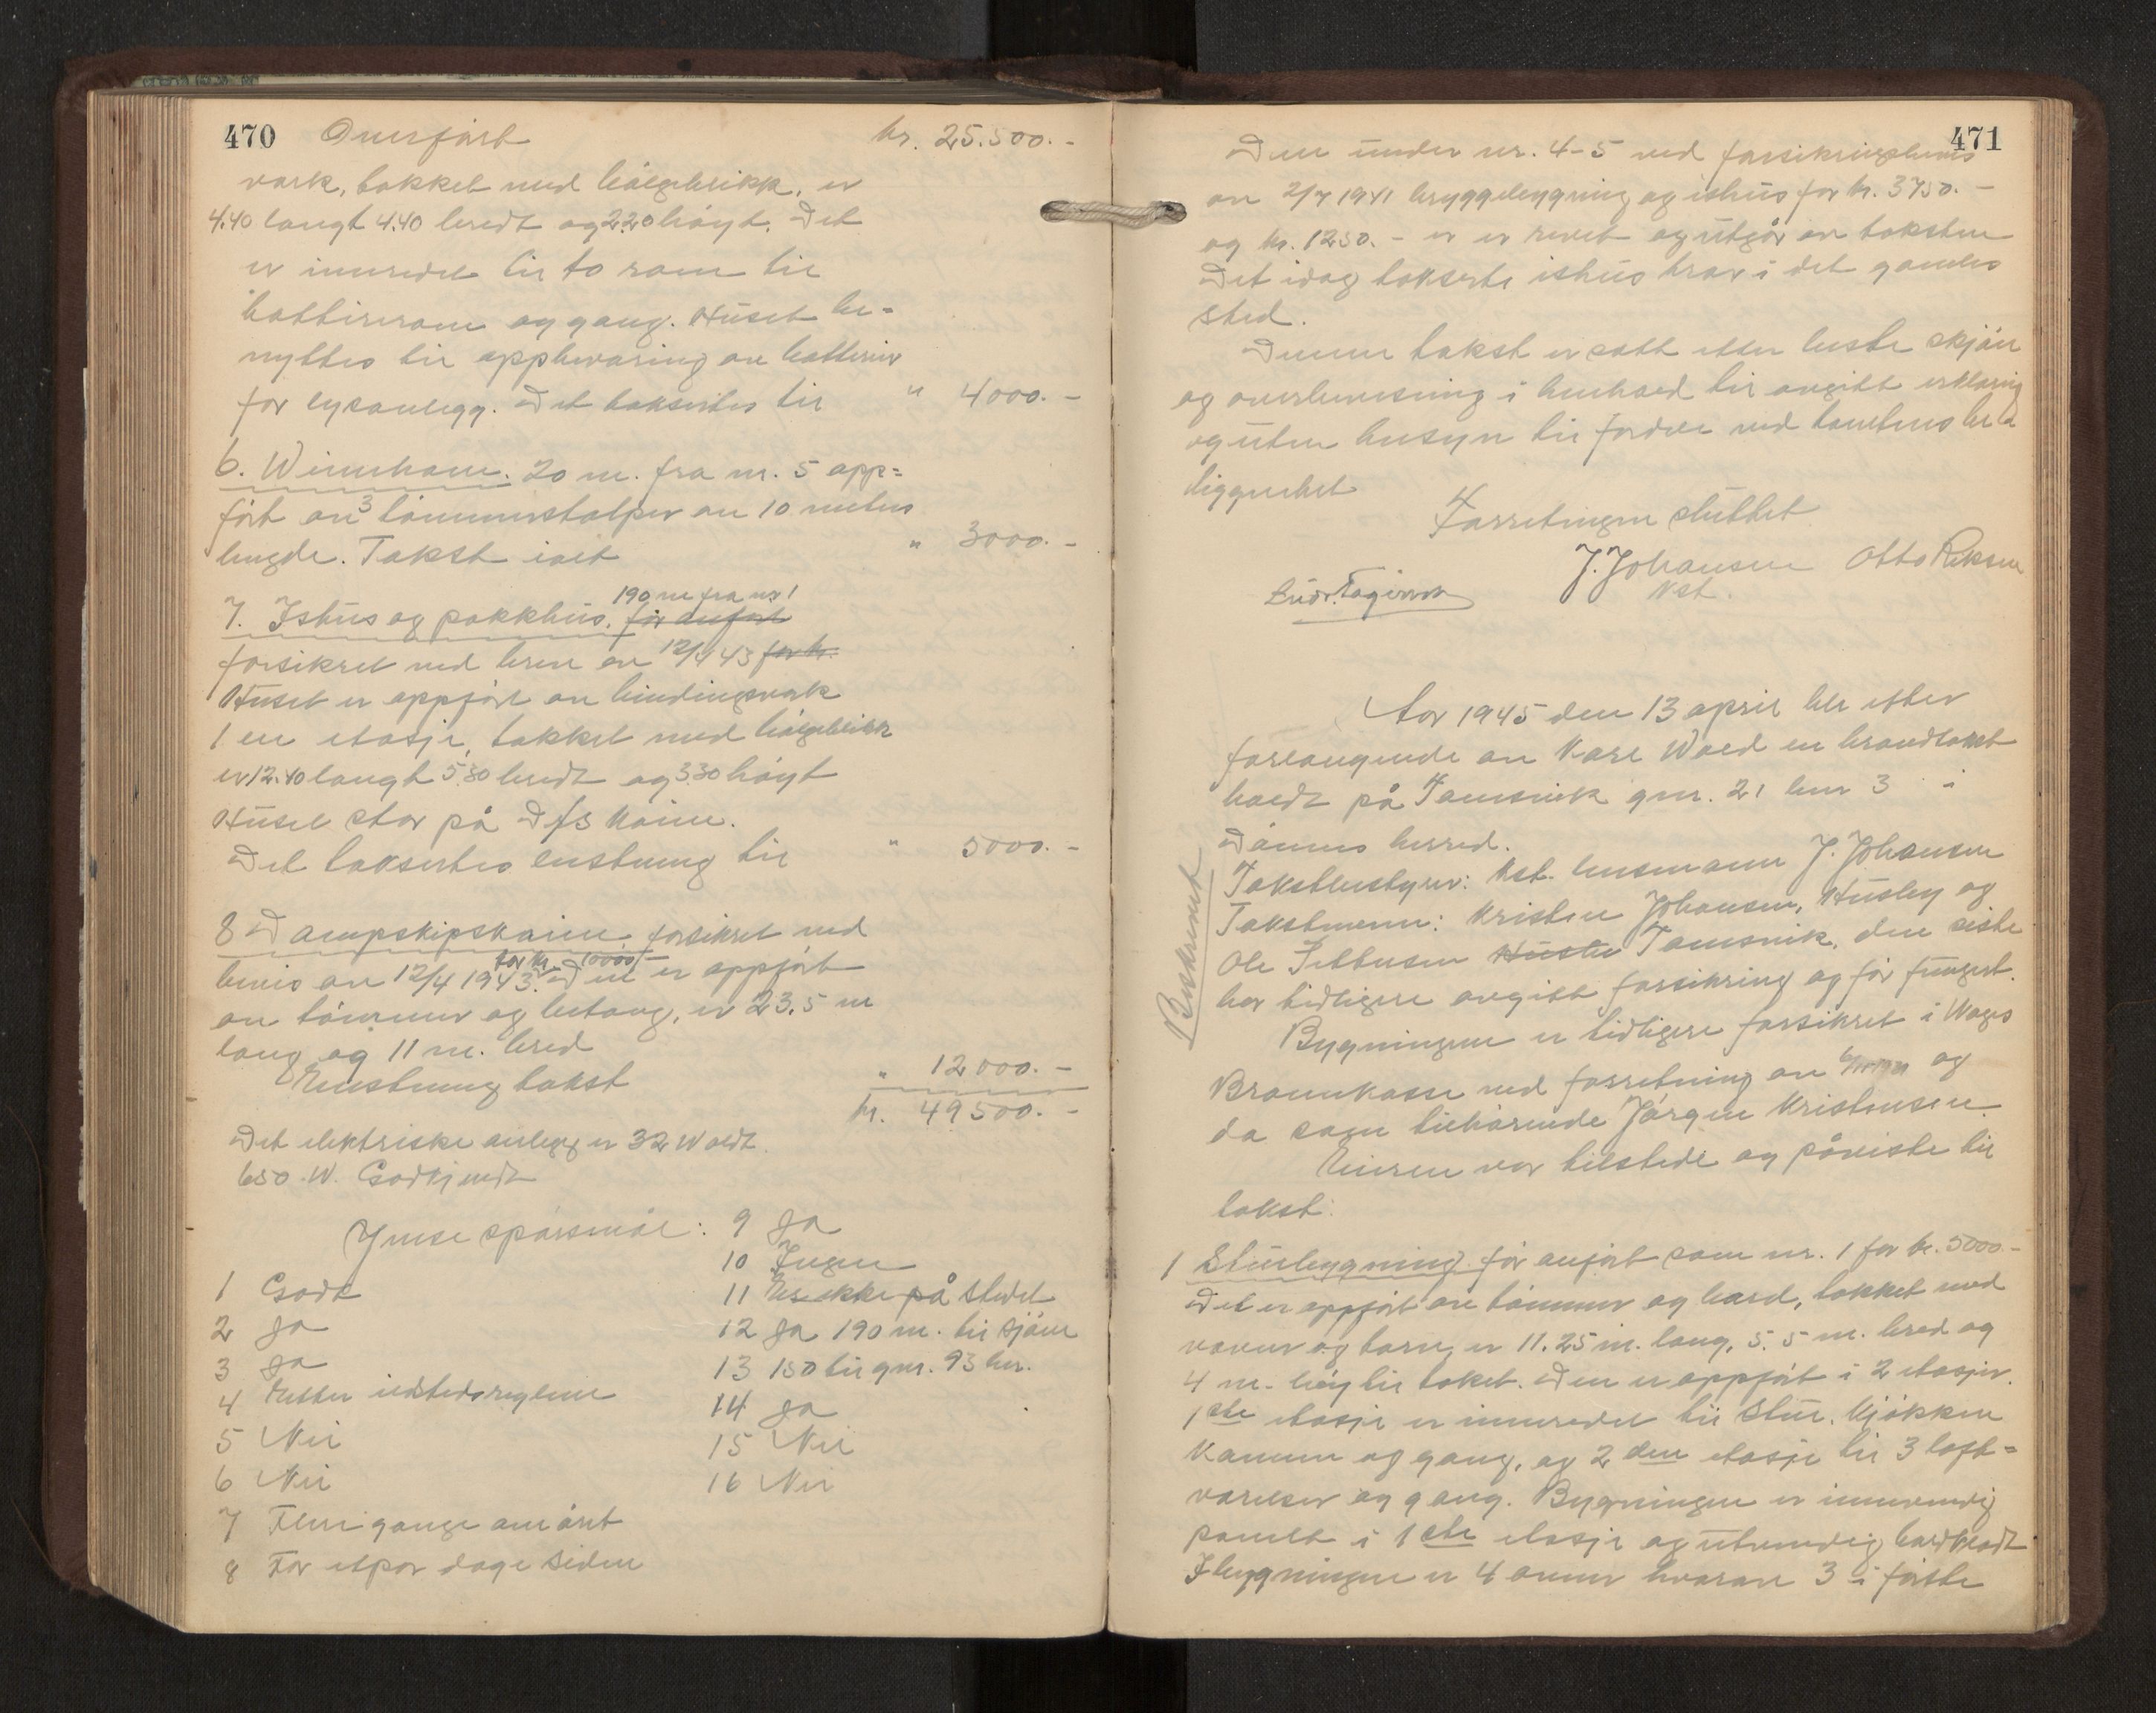 470 Overført kr. 25.500.-
verk, tekket med bølgeblikk, er
4.40 langt 4.40 bredt og 2.20 høyt. Det
er innredet til to rom til
battirirom og gang. Huset be=
nyttes til oppbevaring av batterier
for lysanlegg. Det takseres til " 4000.-
6. Winnhom. 20 m. fra nr. 5 opp=
ført av 3 tømmerstolper av 10 meters
lengde. Takst ialt " 3000.-
190 m fra nr 1
7. Ishus og pakkhus. før anført
forsikret ved brev av 12/4 43 for kr.
Huset er oppført av bindingsverk
1 en etasje, tekket med bølgeblikk
er 12.40 langt 5.30 bredt og 3.30 høyt
Huset står på Dfskaien.
Det takseres enstemmig til " 5000.-
8 Dampskipskaien forsikret ved
for kr. 10000.-
brev av 12/4 1943. Den er oppført
av tømmer og betong, er 23.5 m
lang og 11 m. bred
Enstemmig takst " 12000.-
kr. 49500.-
Det elektriske anlegg er 32 Woldt.
650 W. Godkjendt
Ymse spørsmål: 9 Ja
10 Ingen
1 Godt 11 Er ikke på stedet
2 Ja 12 Ja 190 m. til sjøen
3 Ja 13 150 til gnr. 93 bnr.
4 Etter ildstedsreglene 14 Ja
5 Nei 15 Nei
6 Nei 16 Nei
7 Flere gange om året
8 For et par dage siden
471
Den under nr. 4-5 ved forsikringsbevis
av 2/7 1941 bryggebygning og ishus for kr. 3750.-
og kr. 1250.- er er revet og utgår av taksten
Det idag takserte ishus står i det gamles
sted.
Denne takst er satt etter beste skjøn
og overbevisning i henhold til avgitt erklæring
og uten hensyn til fordel ved tomtens be-
liggenhet
Forretningen sluttet
J. Johansen Otto Riksen
Kst.
Aar 1945 den 13 april ble efter
forlangende av Karl Wold en brandtakst
holdt på Tamsvik gnr. 21 bnr 3 i
Dønnes herred.
Takstbestyrer: Kst. lensmann J. Johansen
Takstmenn: Kristen Johansen, Husby og
Ole Tettusen Husby Tamsvik, den siste
har tidligere avgitt forsikring og før fungert.
Beskrevet
Bygningen er tidligere forsikret i Noges
Brannkasse ved forretning av og
da som tilhørende Jørgen Kristensen
Eieren var tilstede og påviste til
takst:
1 Stuebygning før anført som nr. 1 for kr. 5000.-
Det er oppført av tømmer og bord, tekket med
never og torv, er 11.25 m. lang, 5.5 m. bred og
4 m. høy til taket. Den er oppført i 2 etasjer.
1ste etasje er innredet til stue, kjøkken
kammer og gang, og 2den etasje til 3 loft=
værelser og gang. Bygningen er innvendig
panelt i 1ste etasje og utvendig bordkledt
I bygningen er 4 ovner hvorav 3 i første